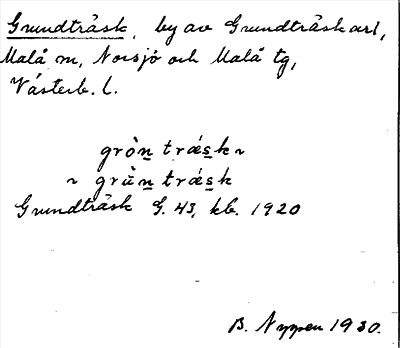 Grundträsk, by av Grundträskarl,
Malå sn, Norsjö och Malå tg,
Västerb. l.
gròn̲ trǽs̲k ~
~ grùn̲ trǽs̲k
Grundträsk G. 43, kb. 1920
B. Nyppen 1930.